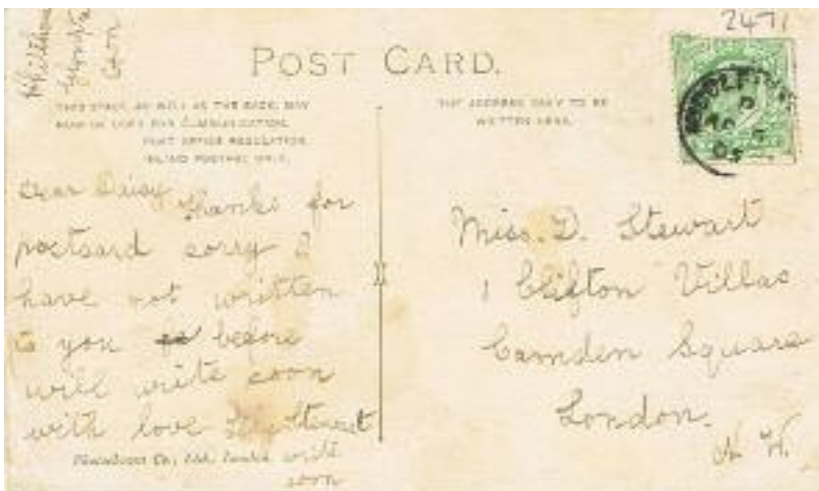 2471
POST CARD.
THIS SPACE, AS WELL AS THE BACK, MAY
NOW BE USED FOR COMMUNICATION.
POST OFFICE REGULATION.
INLAND POSTAGE ONLY.
THE ADDRESS ONLY TO BE
WRITTEN HERE.
Dear Daisy
Thanks for
postcard sorry I
have not written
to you before
will write soon
with love Stewart
write
soon
Co., Ltd., London
Miss. D. Stewart
1 Clifton Villas
Camden Square
London.
N. W.